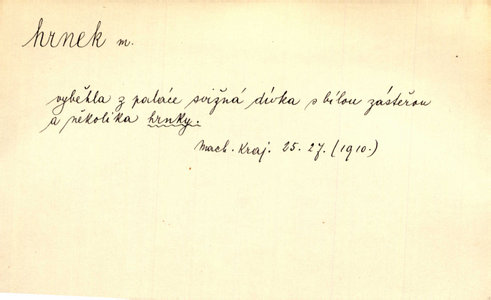 hrnek m.
vyběhla z paláce svižná dívka s bílou zástěrou
a několika hrnky.
Mach. Kraj. 25. 27. (1910.)